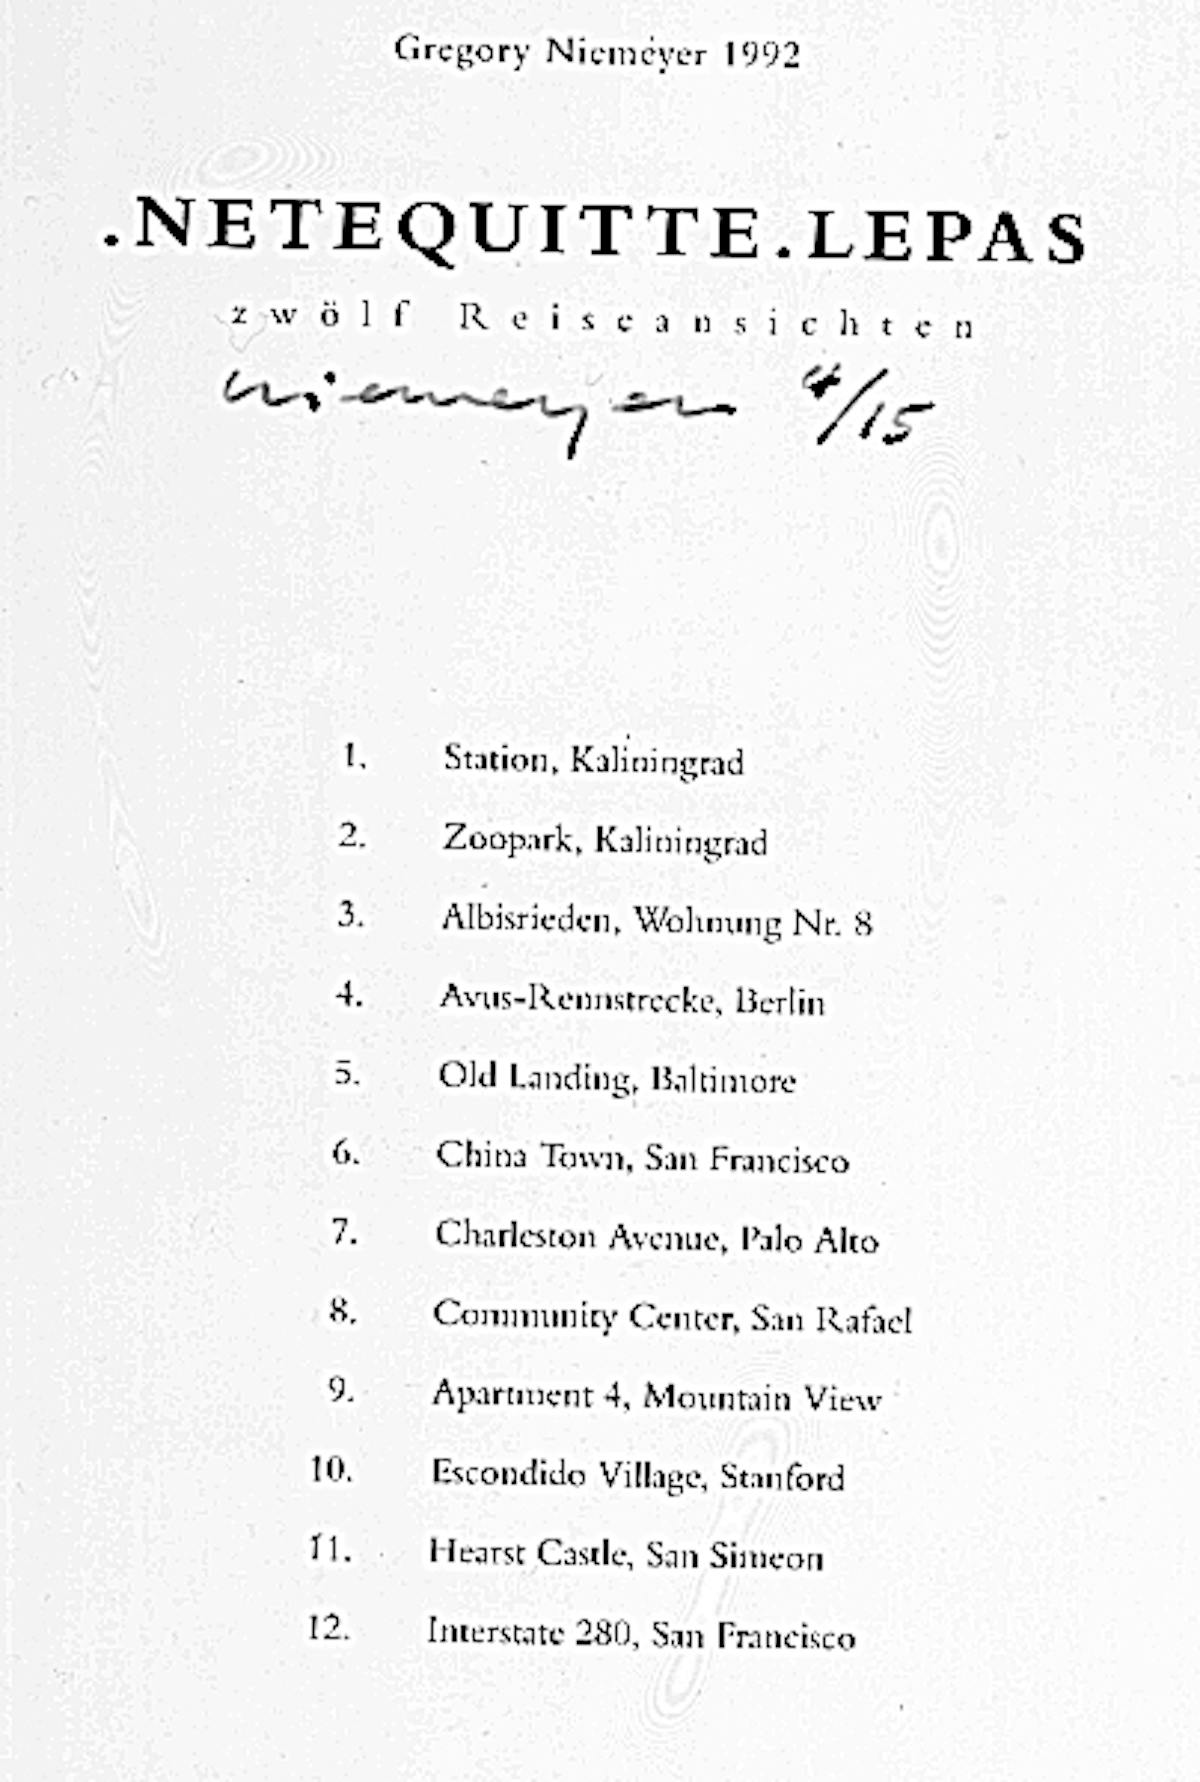 Gregory Niemeyer 1992
.NETEQUITTE.LEPAS
zwölf Reiseansichten
Niemeyer 4/15
1. Station, Kaliningrad
2. Zoopark, Kaliningrad
3. Albisrieden, Wohnung Nr. 8
4. Avus-Rennstrecke, Berlin
5. Old Landing, Baltimore
6. China Town, San Francisco
7. Charleston Avenue, Palo Alto
8. Community Center, San Rafael
9. Apartment 4, Mountain View
10. Escondido Village, Stanford
11. Hearst Castle, San Simeon
12. Interstate 280, San Francisco